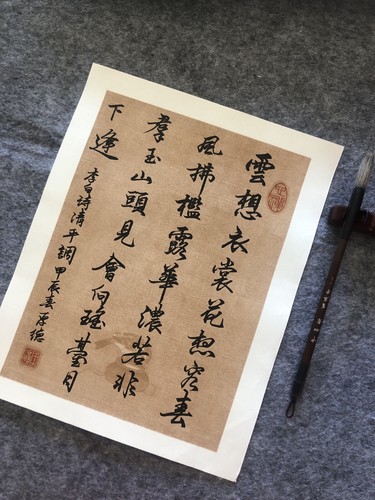 雲想衣裳花想容春
風拂檻露華濃若非
羣玉山頭見會向瑤臺月
下逢
李白詩清平調甲辰春厚德